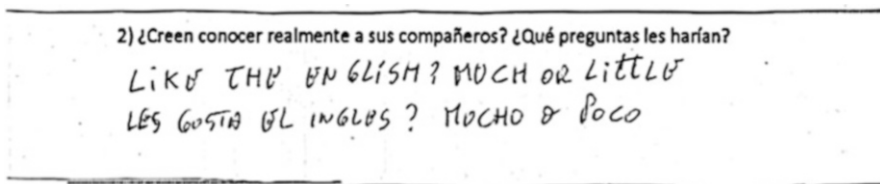 2) ¿Creen conocer realmente a sus compañeros? ¿Qué preguntas les harían?
LiKE THE ENGLiSH? MUCH OR LittLE
LES GUSTA EL INGLES? MUCHO O POCO